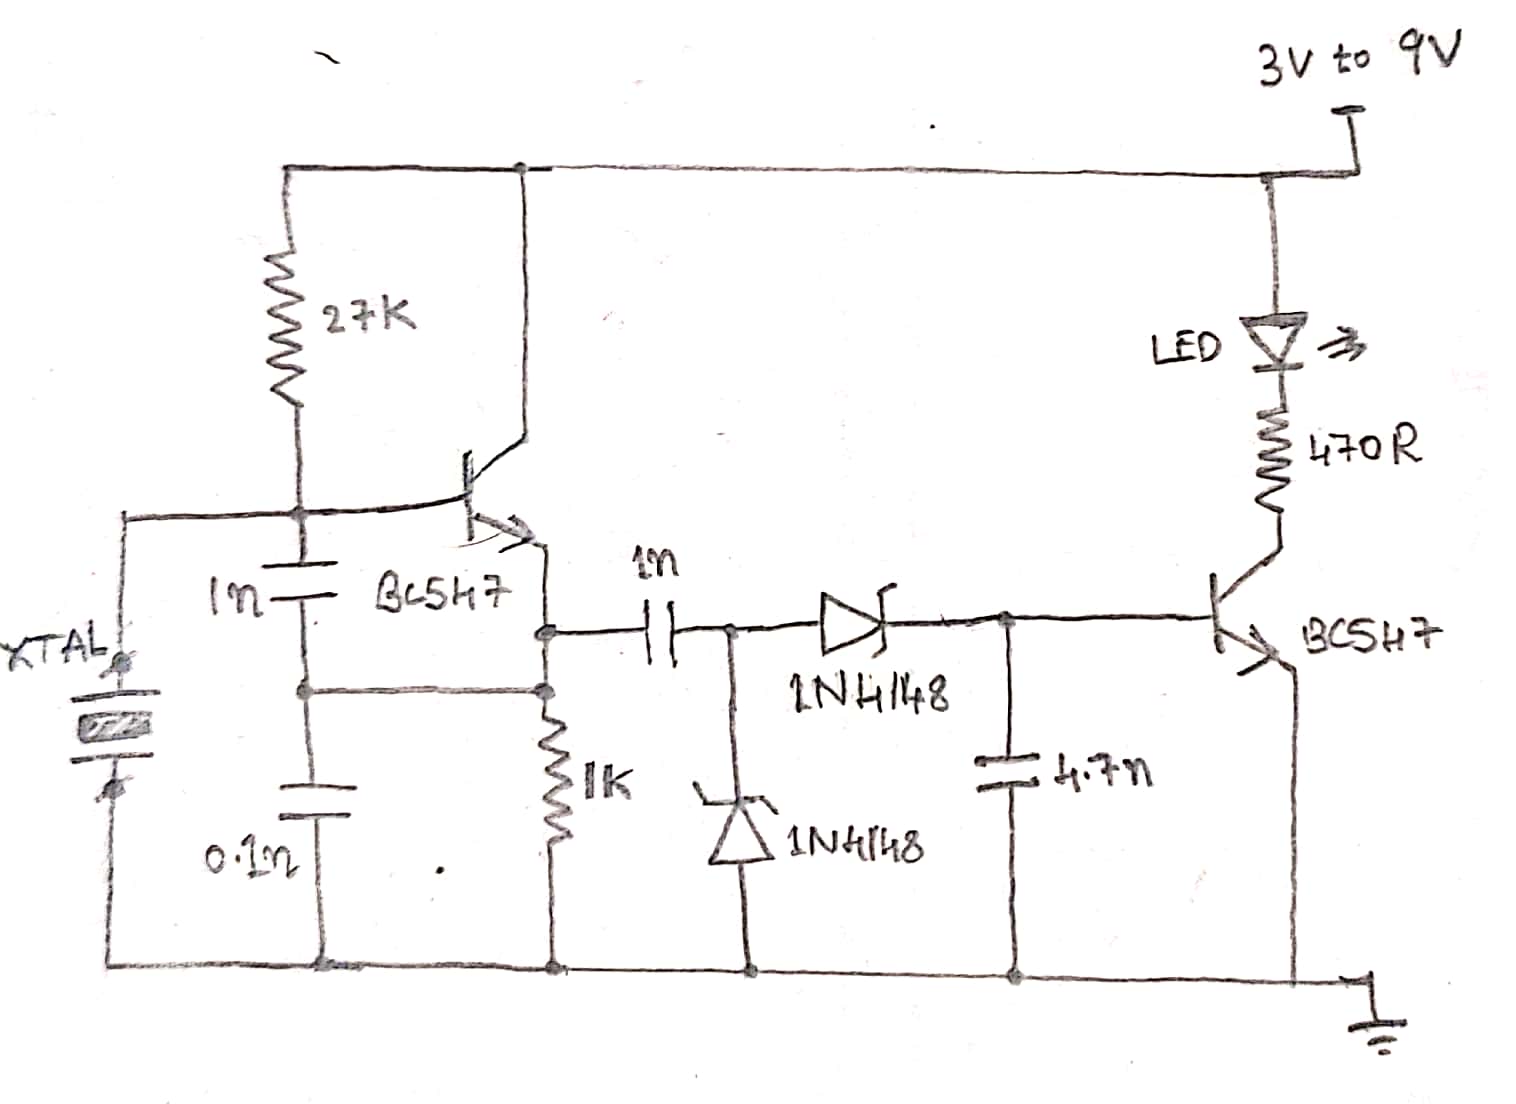 3V to 9V
27K
LED
470R
1n
BC547
1n
BC547
XTAL
1N4148
1K
4.7n
0.1n
1N4148